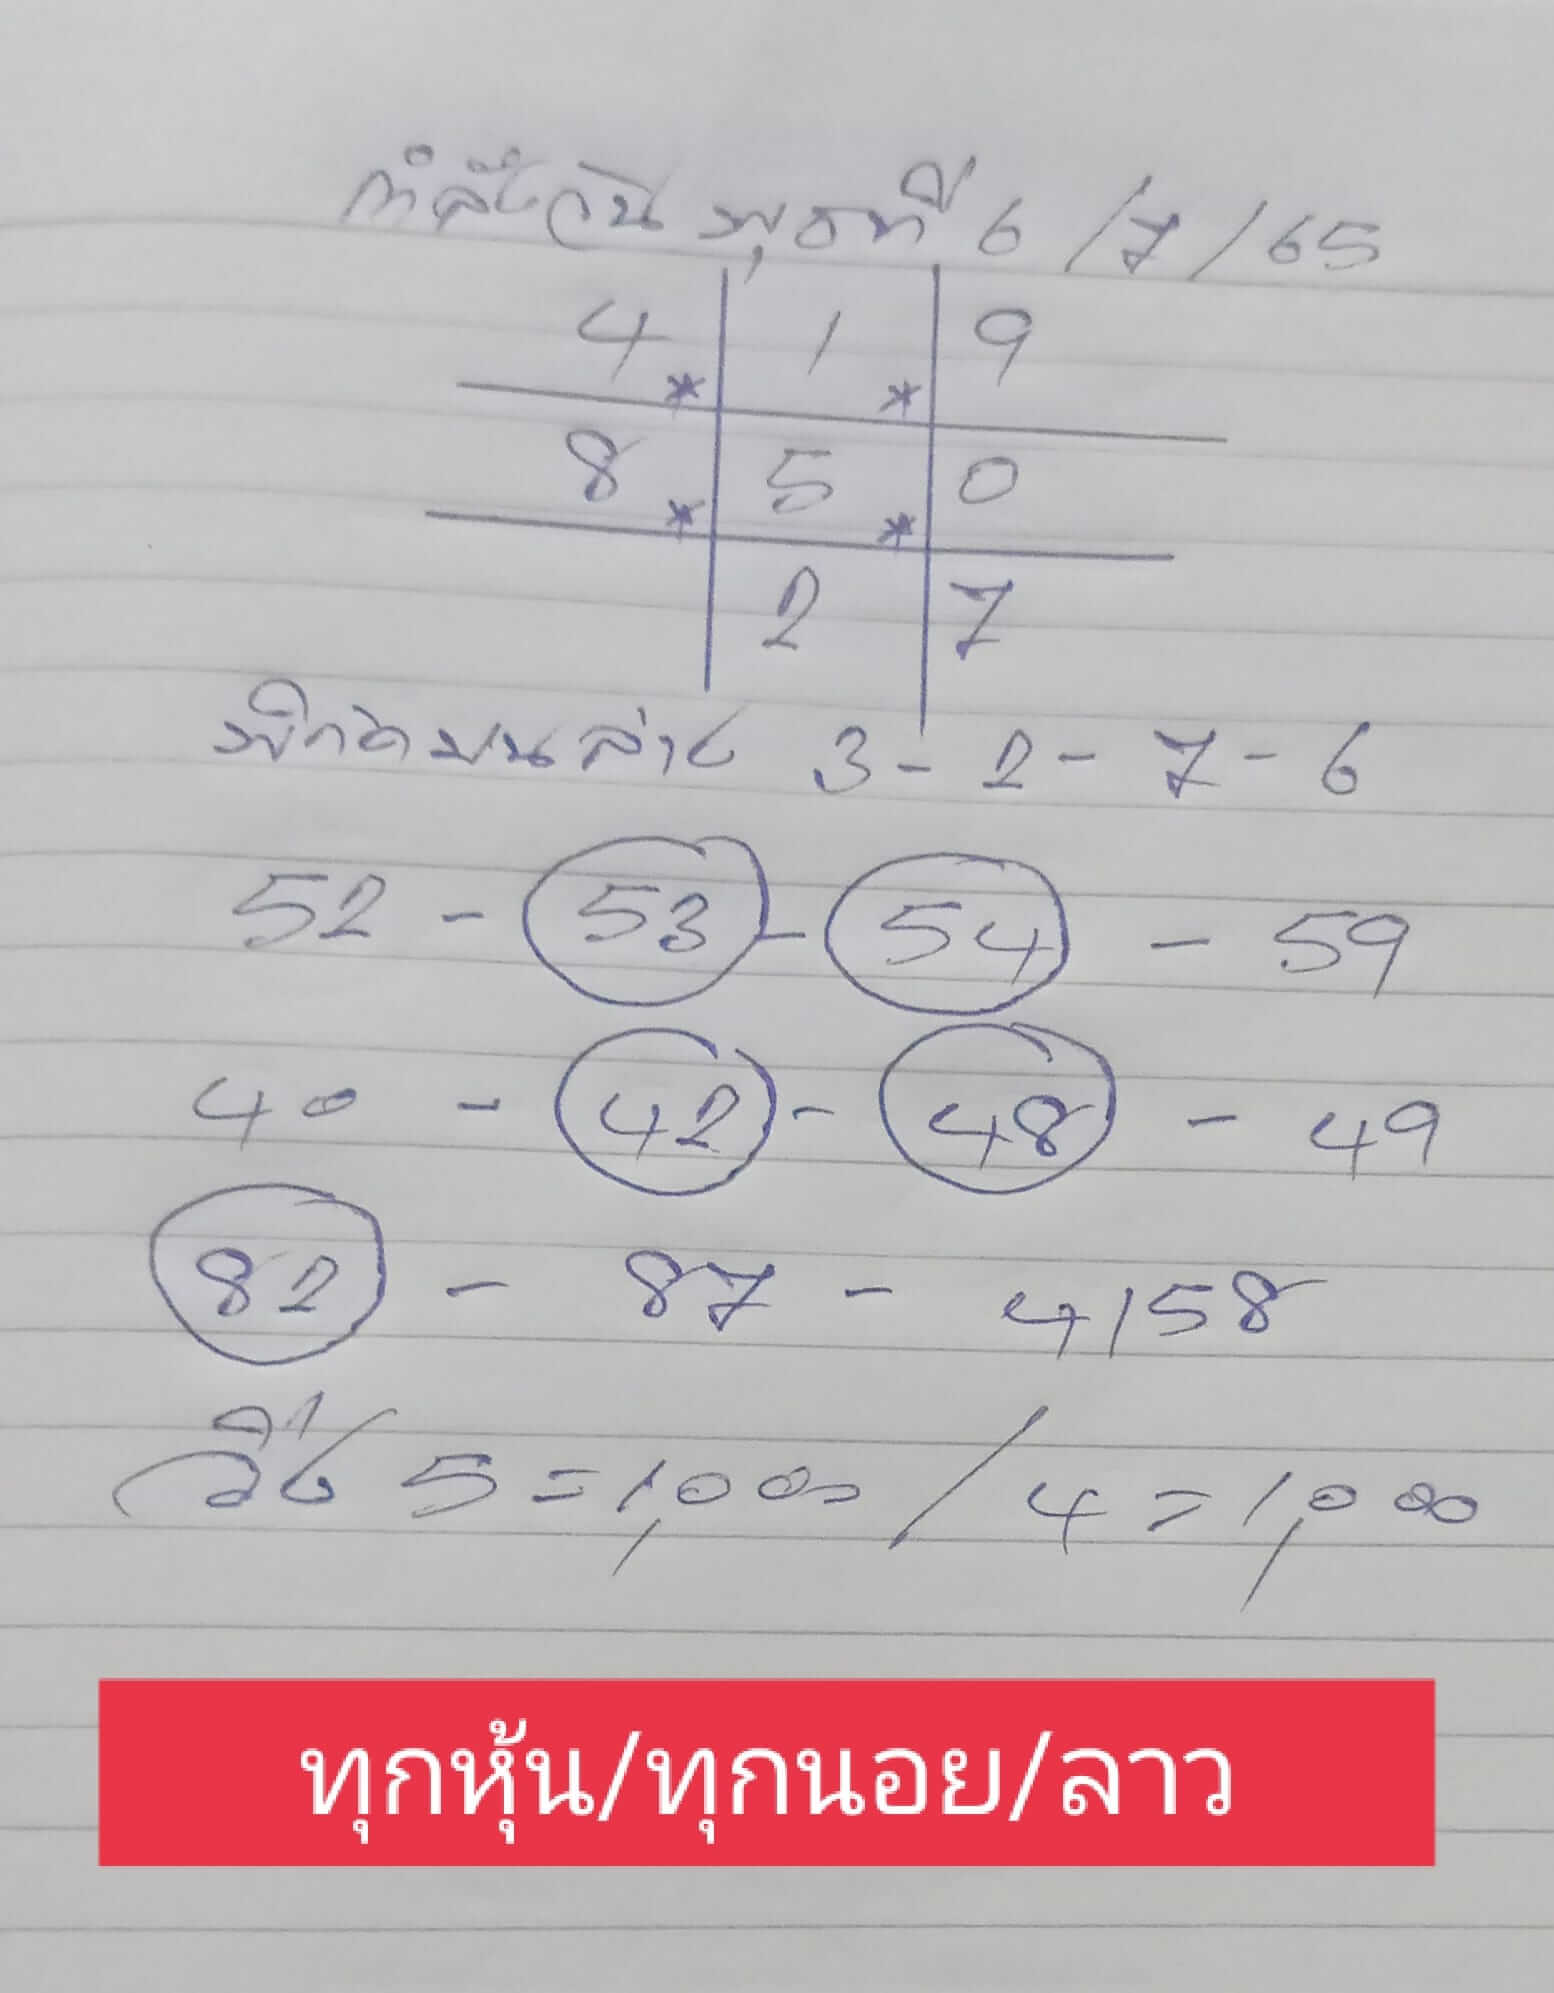 กำลังวันพุธที่ 6/7/65
4 * 1 * 9
8 * 5 * 0
2 7
พิกัดบนล่าง 3-2-7-6
52 - 53 - 54 - 59
40 - 42 - 48 - 49
82 - 87 - 4158
วิ่ง 5=1,000/4=1,000
ทุกหุ้น/ทุกนอย/ลาว